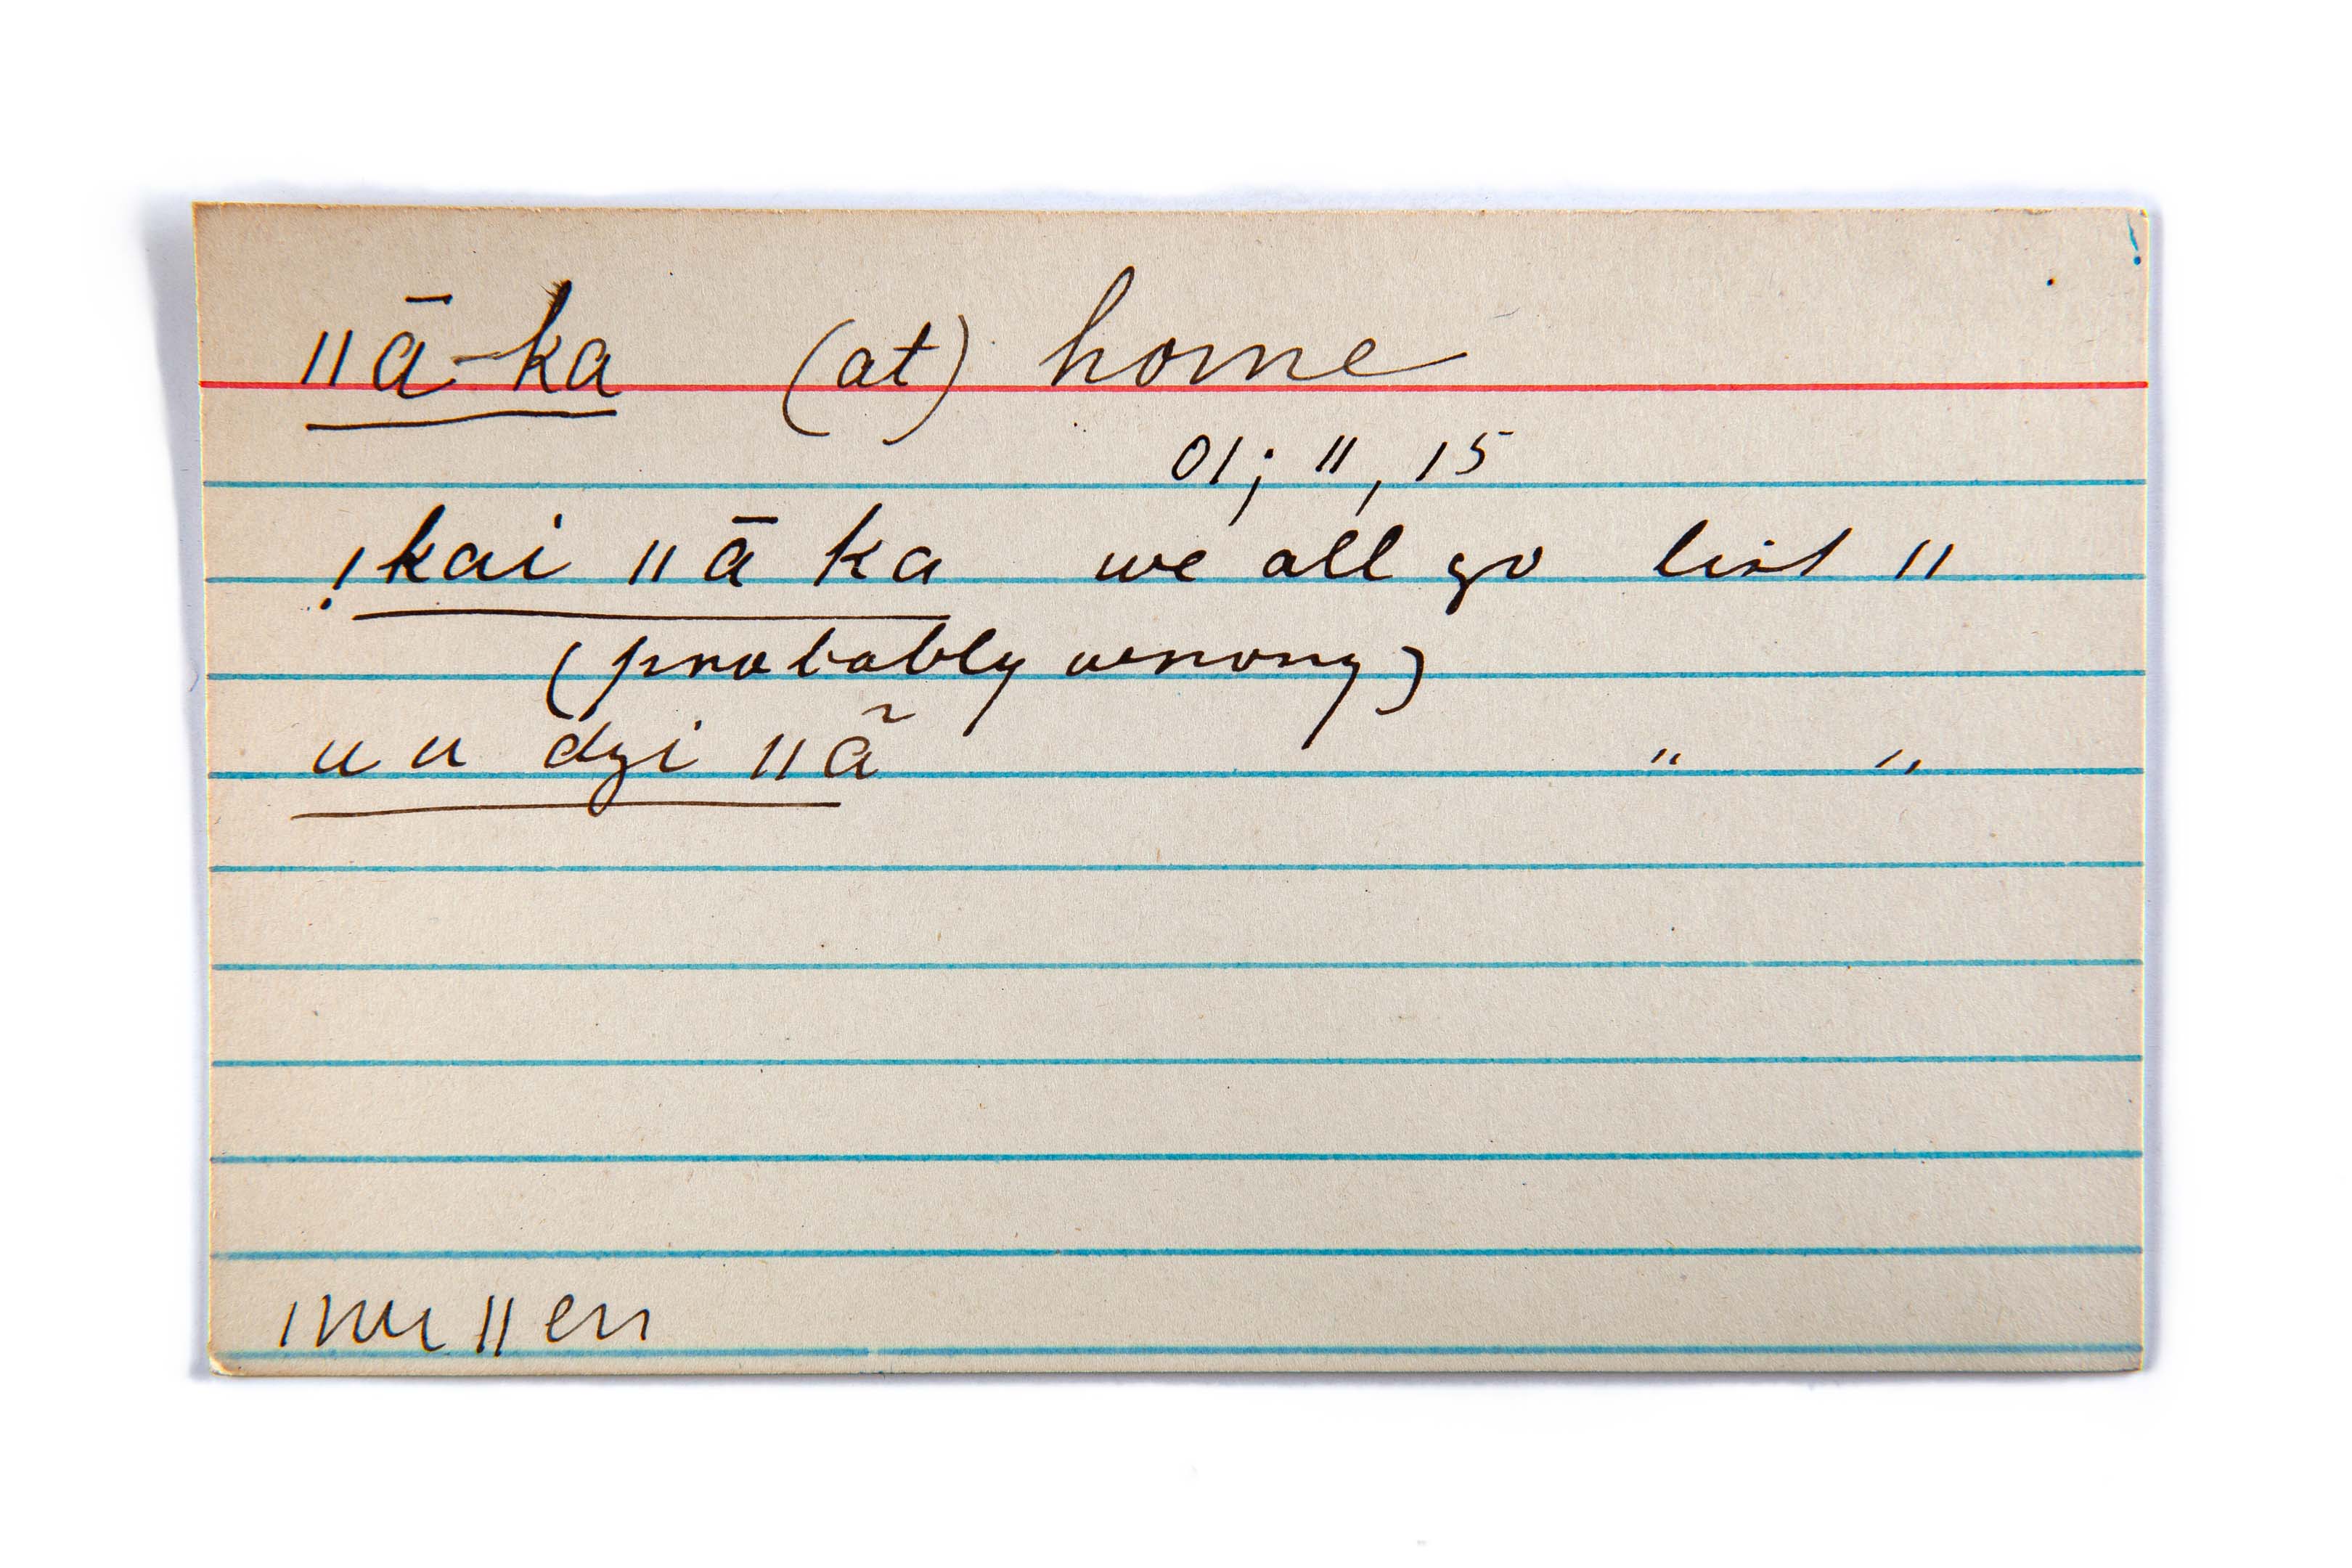 ǁā-ka (at) home
01; 11, 15
!kai ǁā ka we all go list 11
(probably wrong)
u u dzi ǁã " "
ǀnuǁen